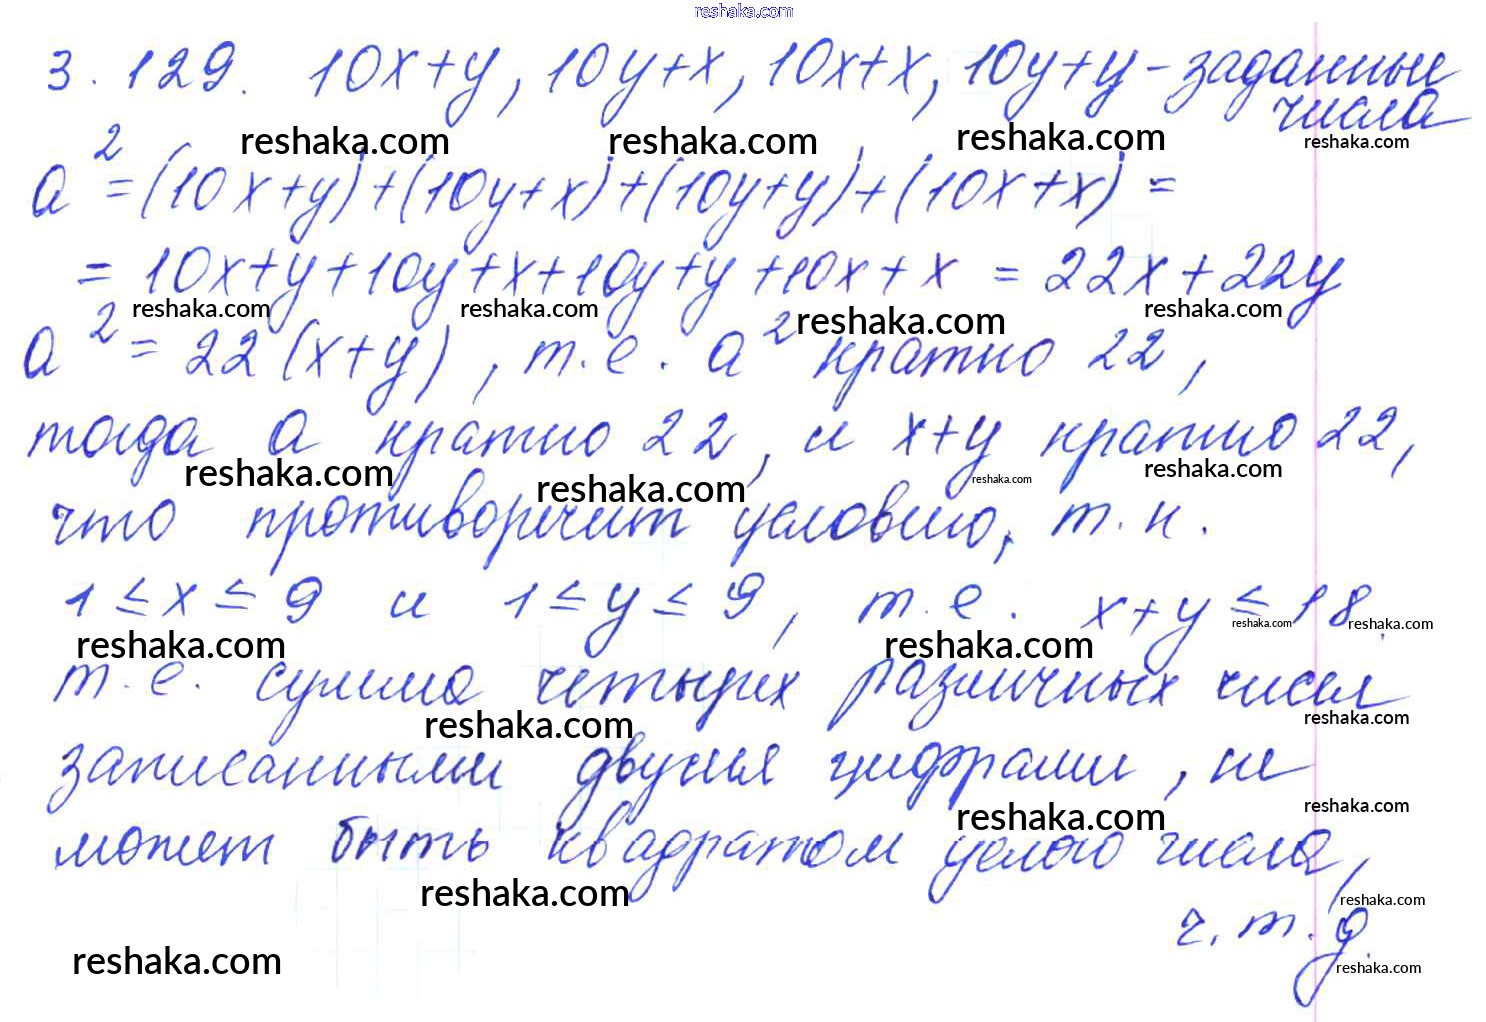 reshaka.com
3.129. 10x+y, 10y+x, 10x+x, 10y+y - заданные
числа
reshaka.com reshaka.com reshaka.com reshaka.com
a² = (10x+y)+(10y+x)+(10y+y)+(10x+x) =
= 10x+y+10y+x+10y+y+10x+x = 22x+22y
reshaka.com reshaka.com reshaka.com reshaka.com
a² = 22(x+y), т.е. a² кратно 22,
тогда a кратно 22, и x+y кратно 22,
reshaka.com reshaka.com reshaka.com reshaka.com
что противоречит условию, т.к.
1 ≤ x ≤ 9 и 1 ≤ y ≤ 9, т.е. x+y ≤ 18
reshaka.com reshaka.com reshaka.com reshaka.com
т.е. сумма четырех различных чисел
reshaka.com reshaka.com
записанными двумя цифрами, не
reshaka.com reshaka.com
может быть квадратом целого числа,
reshaka.com reshaka.com
ч.т.д.
reshaka.com reshaka.com